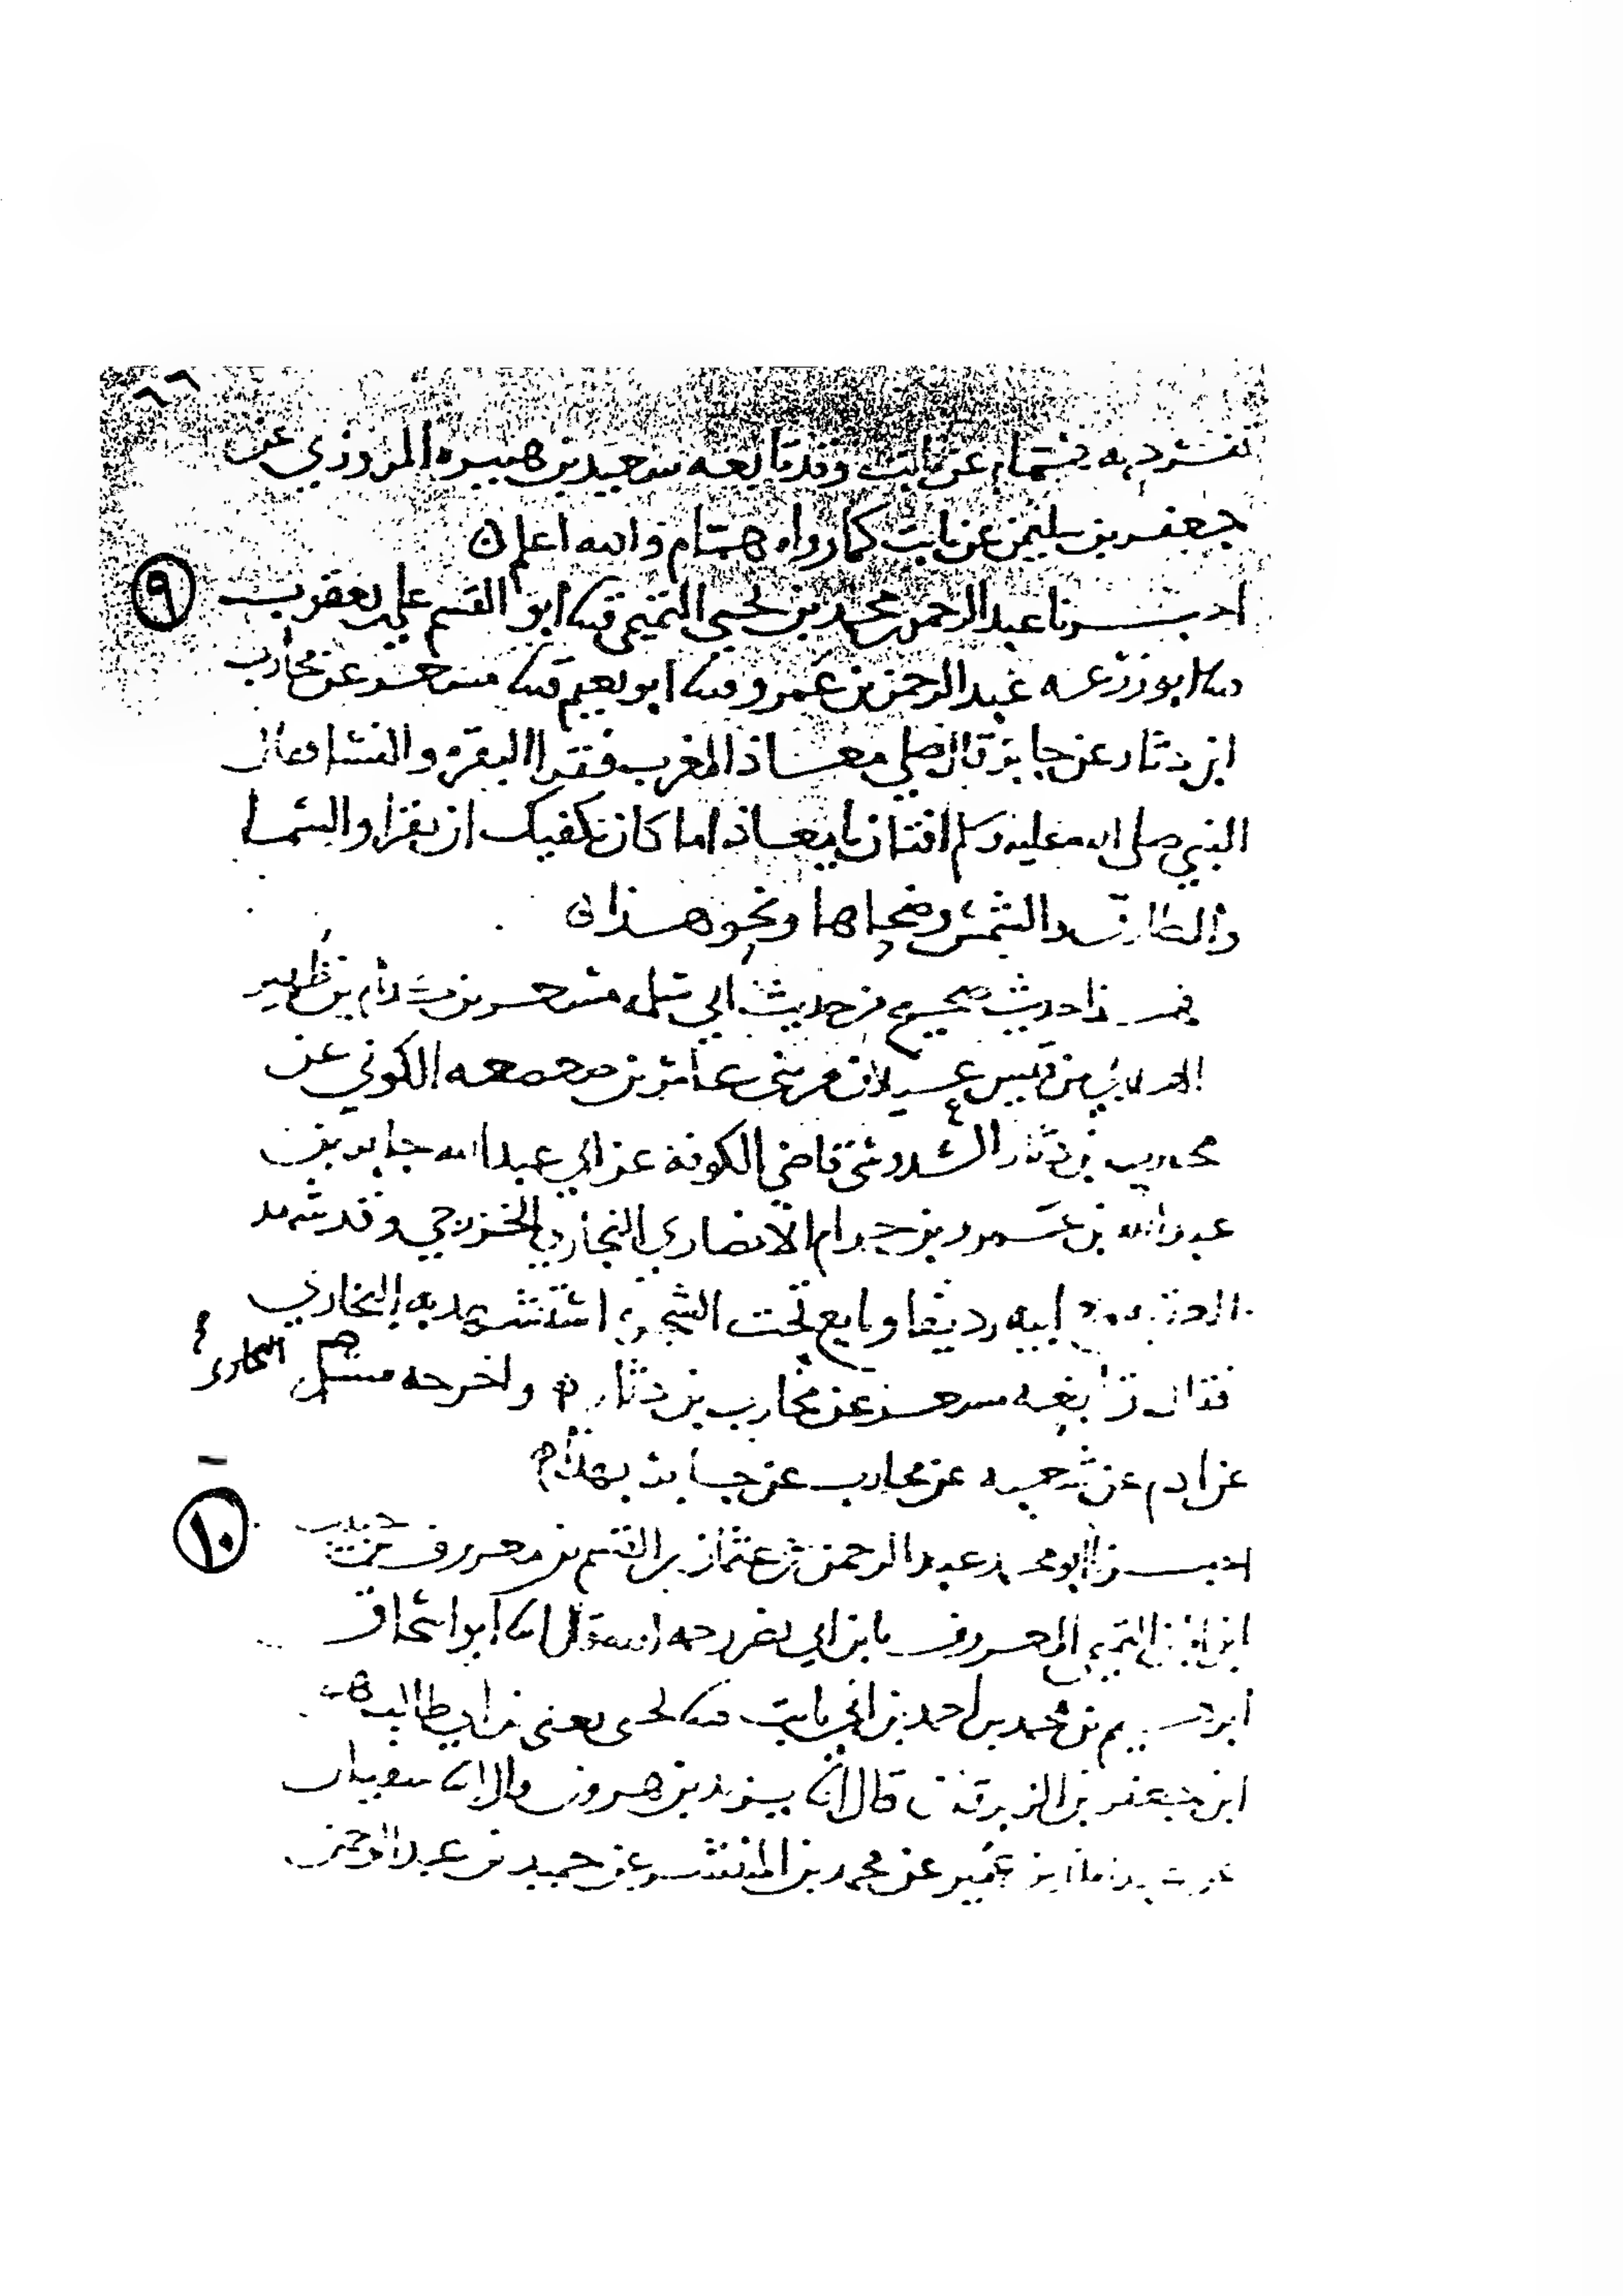 ٦٦
تفرد به همام عن ثابت وقد تابعه سعيد بن هبيره المروزي عن
جعفر بن سليمن عن ثابت كما رواه همام والله اعلم ن
٩
اخبرنا عبد الرحمن محمد بن يحيى التميمي ثنا ابو القسم علي يعقوب
ثنا ابو زرعه عبد الرحمن بن عمرو ثنا ابو نعيم ثنا مسعر عن محارب
ابن دثار عن جابر قال صلى معاذ المغرب فقرا البقره والنسا فقال
النبي صلى الله عليه وسلم افتان يا معاذ اما كان يكفيك ان تقرا والسما
والطارق والشمس وضحاها ونحو هذا ن
هذا حديث صحيح من حديث ابي سلمه مسعر بن كدام بن ظهير
الهلالي من قيس عيلان من بني عامر بن صعصعه الكوفي عن
محارب بن دثار السدوسي قاضي الكوفه عن ابي عبد الله جابر بن
عبد الله بن عمرو بن حرام الانصاري النجاري الخزرجي وقد شهد
العقبه مع ابيه رديفا وبايع تحت الشجره استشهد به البخاري
فقال تابعه مسعر عن محارب بن دثار واخرجه البخاري
عن ادم عن شعبه عن محارب عن جابر بهذا
١٠
اخبرنا ابو محمد عبد الرحمن بن عثمان بن القسم بن معروف بن حبيب
ابن ابان التميمي المعروف بابن ابي نصر رحمه الله قال انا ابو اسحاق
ابرهيم بن محمد بن احمد بن ابي ثابت ثنا يحيى يعني بن ابي طالب
ابن جعفر بن الزبرقان قال انا يزيد بن هرون قال انا سفيان
عن عبد الملك بن عمير عن محمد بن المنتشر عن حميد بن عبد الرحمن